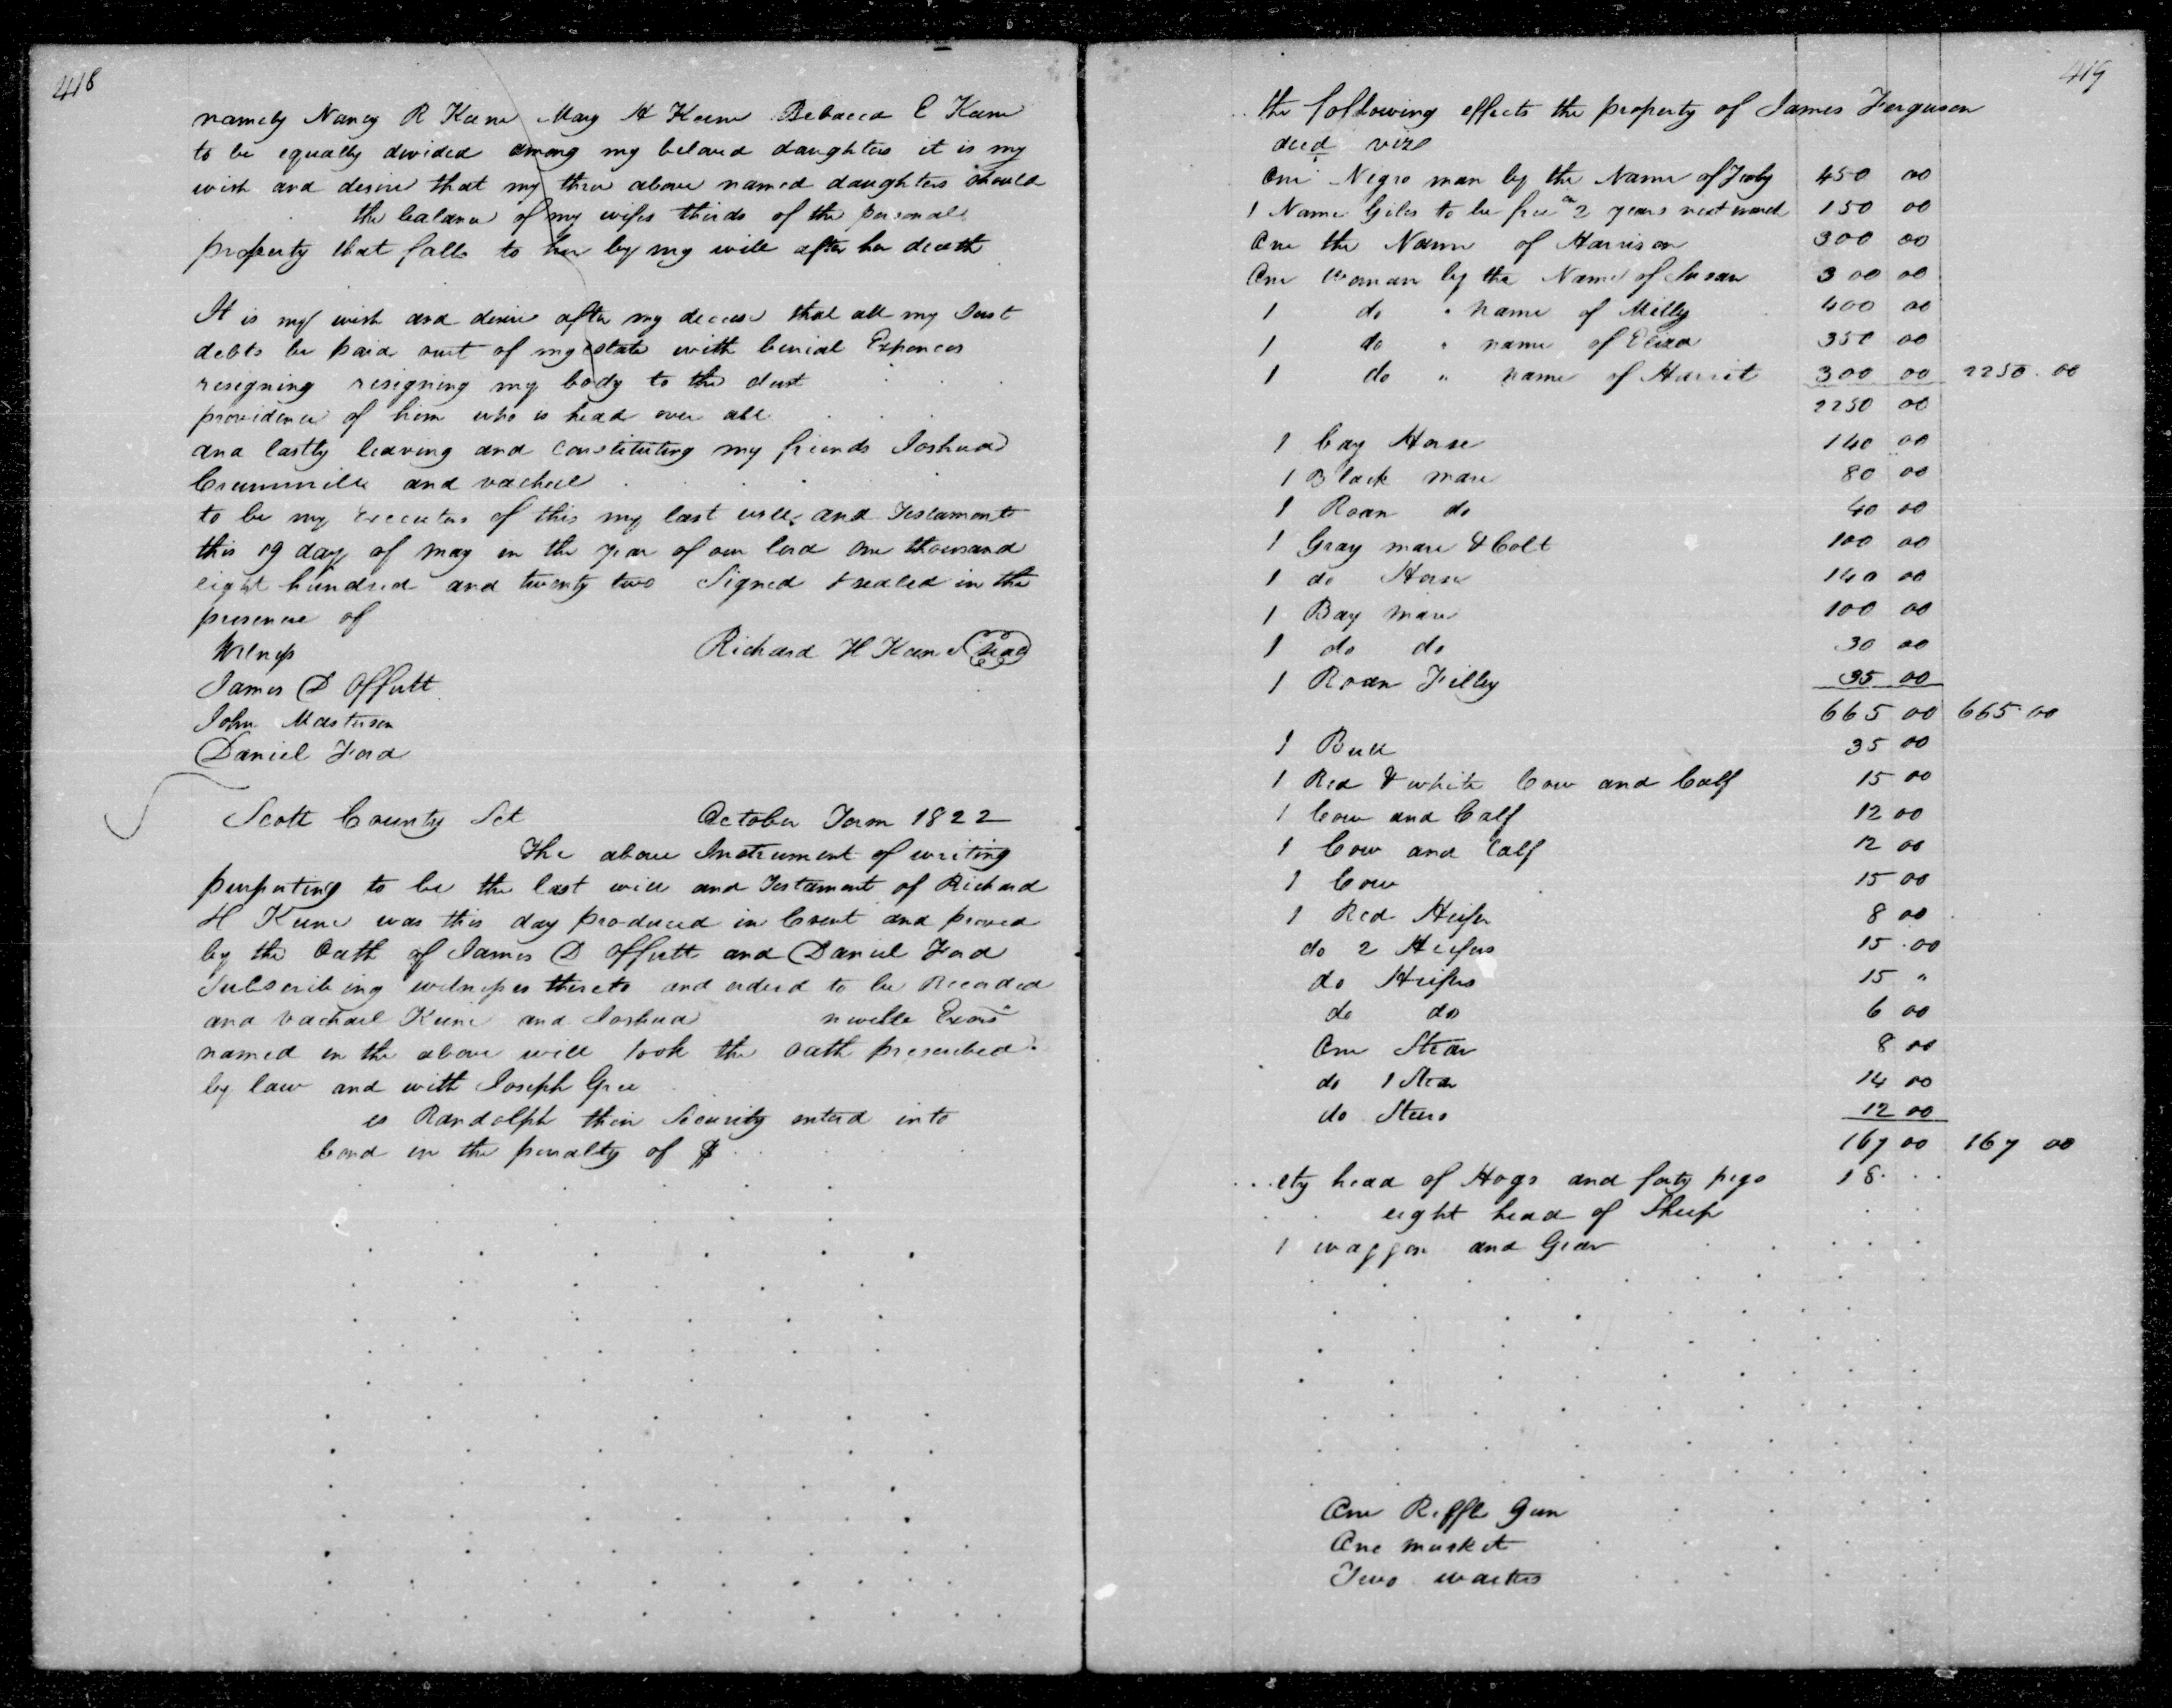 418
namely Nancy R Keene Mary H Keene Rebacca E Keene
to be equally divided among my beloved daughters it is my
wish and desire that my three above named daughters should
the balance of my wifes thirds of the personal
property that falls to her by my will after her death
It is my wish and desire after my decease that all my Just
debts be paid out of my estate with burial Expences
resigning resigning my body to the dust
providence of him who is head over all
and lastly leaving and constituting my friends Joshua
and vachael
to be my Executors of this my last will and Testament
this 19 day of may in the year of our lord one thousand
eight hundred and twenty two Signed & sealed in the
presence of
Witness
Richard H Keene Seal
James D Offutt
John Masterson
Daniel Ford
Scott County Sct October Term 1822
The above Instrument of writing
purporting to be the last will and Testament of Richard
H Keene was this day produced in Court and proved
by the Oath of James D Offutt and Daniel Ford
Subscribing witnesses thereto and orderd to be Recorded
and Vachael Keene and Joshua nwille Exors
named in the above will took the oath prescribed
by law and with Joseph Gree
es Randolph their Security enterd into
bond in the penalty of $
419
the following effects the property of James Ferguson
decd vizd
One Negro man by the Name of 450 00
1 Name Giles to be free in 2 years next march 150 00
One the Name of Harrison 300 00
One Woman by the Name of Susan 300 00
1 do " name of Milly 400 00
1 do " name of Eliza 350 00
1 do " name of Harriet 300 00 2250.00
2250 00
1 bay Horse 140 00
1 Black mare 80 00
1 Roan do 40 00
1 Gray mare & Colt 100 00
1 do Horse 140 00
1 Bay mare 100 00
1 do do 30 00
1 Roan Filley 35 00
665 00 665.00
1 Bull 35 00
1 Red & white Cow and Calf 15 00
1 Cow and Calf 12 00
1 Cow and Calf 12 00
1 Cow 15 00
1 Red Heifer 8 00
do 2 Heifers 15.00
do Heifers 15 "
do do 6 00
One Stear 8 00
do 1 Stear 14 00
do Steers 12 00
167 00 167 00
ety head of Hogs and forty pigs 18
eight head of Sheep
1 waggon and Gear
One Riffle Gun
One musket
Two waiters